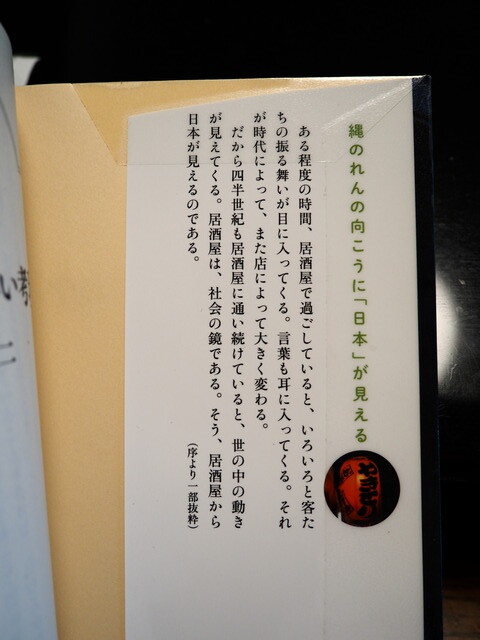 縄のれんの向こうに「日本」が見える
やきとり
ある程度の時間、居酒屋で過ごしていると、いろいろと客た
ちの振る舞いが目に入ってくる。言葉も耳に入ってくる。それ
が時代によって、また店によって大きく変わる。
だから四半世紀も居酒屋に通い続けていると、世の中の動き
が見えてくる。居酒屋は、社会の鏡である。そう、居酒屋から
日本が見えるのである。
（序より一部抜粋）
い考